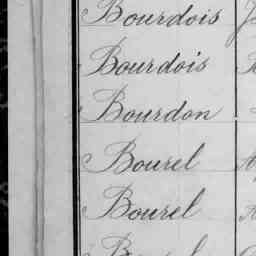 Bourdois
Bourdois
Bourdon
Bourel
Bourel